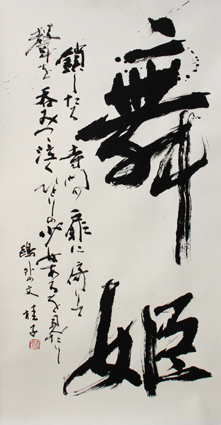 舞姫
鎖したる寺門の扉に倚りて
聲を呑みつつ泣くひとりの少女あるを見たり
鷗外の文 桂子